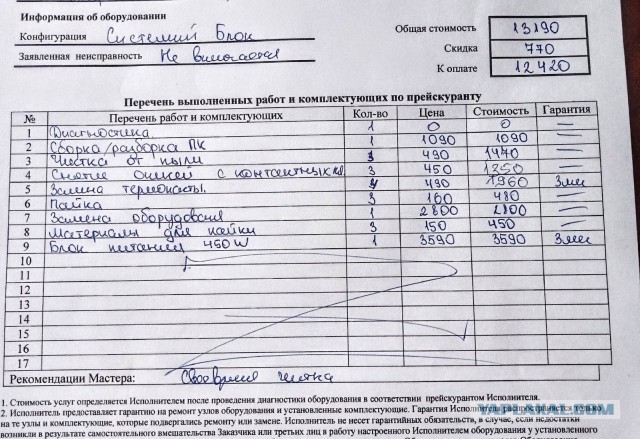 Информация об оборудовании
Конфигурация Системный Блок
Заявленная неисправность Не включается
Общая стоимость 13190
Скидка 770
К оплате 12420
Перечень выполненных работ и комплектующих по прейскуранту
№ Перечень работ и комплектующих Кол-во Цена Стоимость Гарантия
1 Диагностика 1 0 0 —
2 Сборка/разборка ПК 1 1090 1090 —
3 Чистка от пыли 3 490 1470 —
4 Снятие окисей с контактных 3 450 1350 —
5 Замена термопасты. 4 490 1960 3 мес
6 Пайка 3 160 480 —
7 Замена оборудования 1 2800 2800 —
8 Материалы для пайки 3 150 450 —
9 Блок питания 450W 1 3590 3590 3 мес
10
11
12
13
14
15
16
17
Рекомендации Мастера: чистка
1. Стоимость услуг определяется Исполнителем после проведения диагностики оборудования в соответствии прейскурантом Исполнителя.
2. Исполнитель предоставляет гарантию на ремонт узлов оборудования и установленные комплектующие. Гарантия Исполнителя распространяется только
на те узлы и комплектующие, которые подвергались ремонту или замене. Исполнитель не несет гарантийных обязательств, в случае, если недостатки
возникли в результате самостоятельного вмешательства Заказчика или третьих лиц в работу настроенного Исполнителем оборудования и установленного
YAPLAKAL.COM